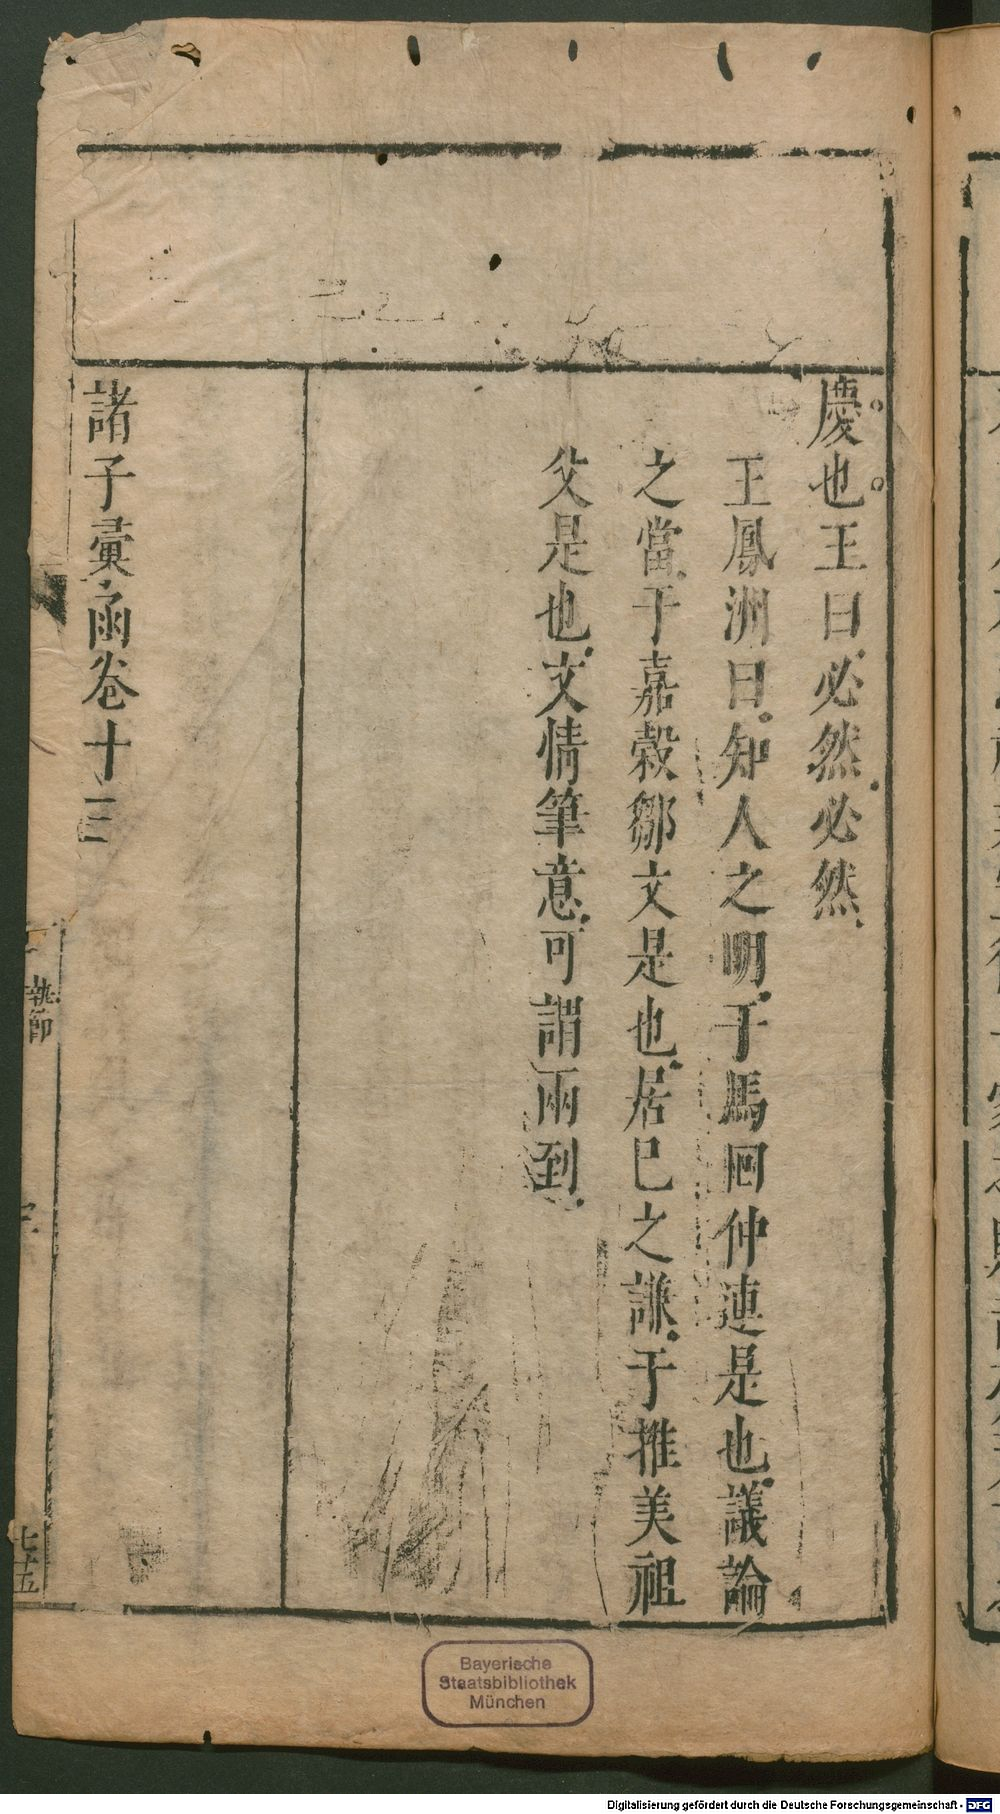 慶也王曰必然必然
王鳳洲曰知人之明于馬回仲連是也議論
之當于嘉穀鄒文是也居巳之謙于推美祖
父是也文情筆意可謂兩到
諸子彚函卷十三
執節
七五
Bayerische
Staatsbibliothek
München
Digitalisierung gefördert durch die Deutsche Forschungsgemeinschaft - DFG